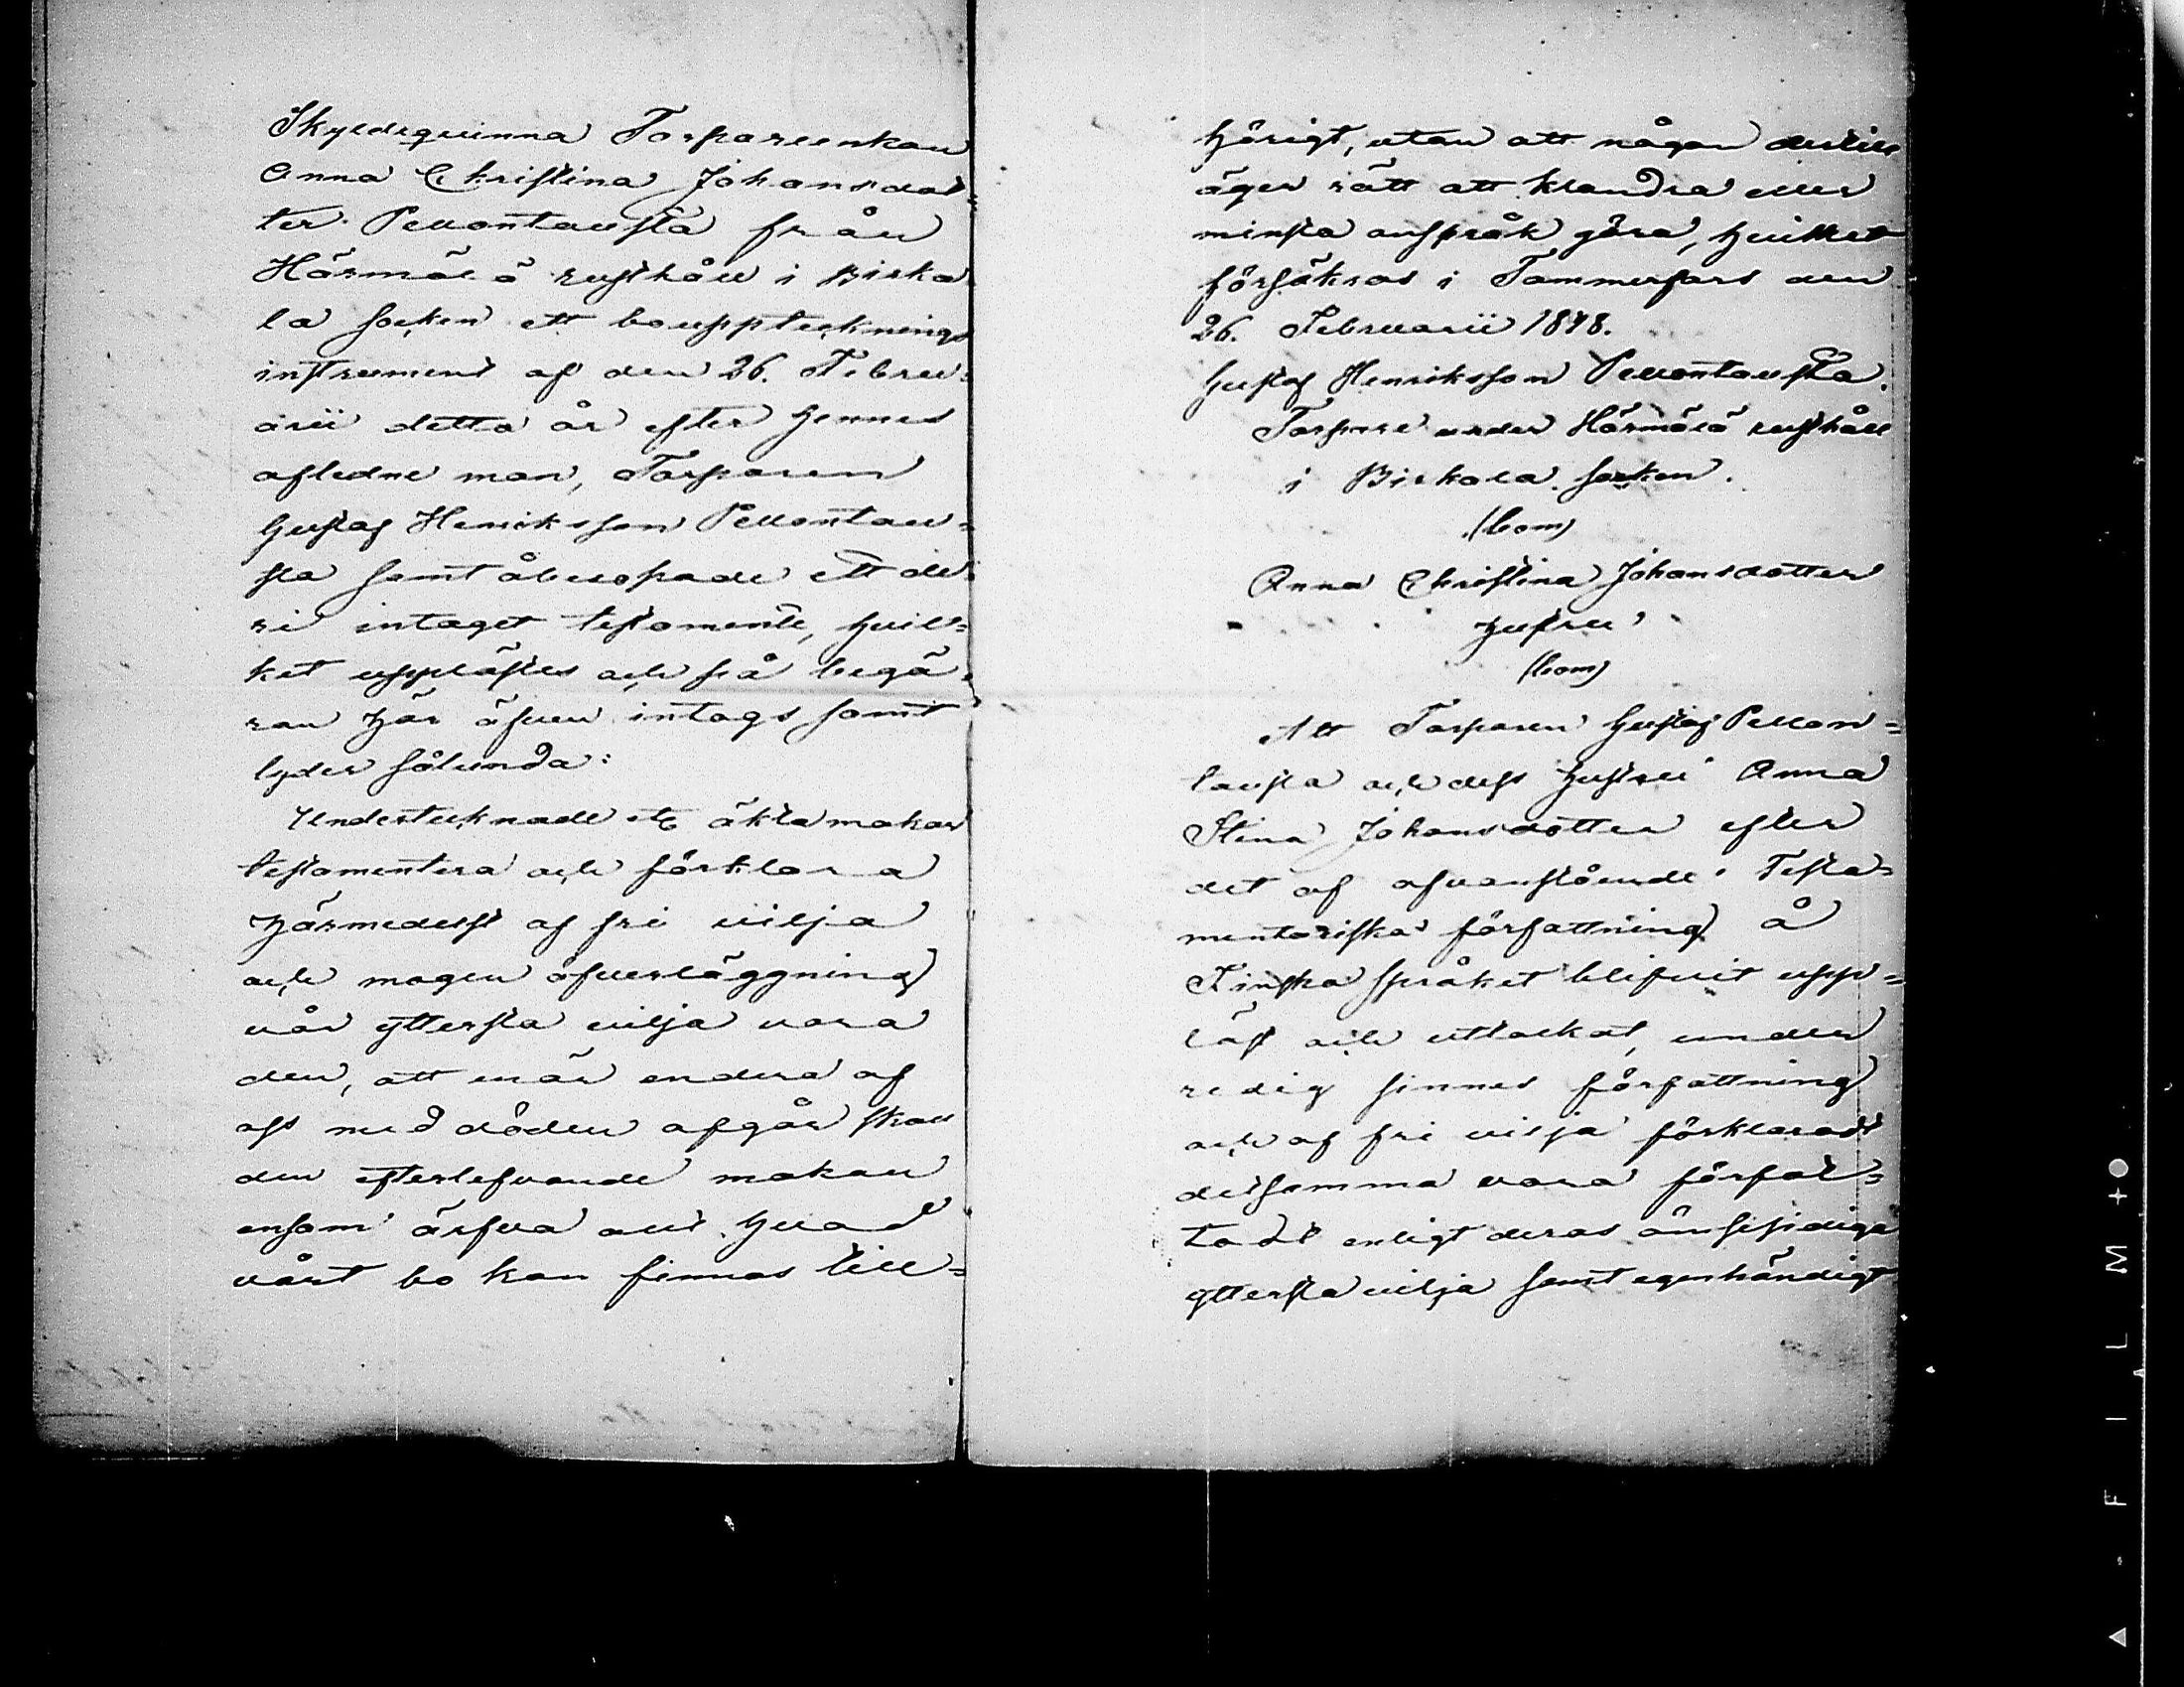 Skyldeqvinna Torpareenkan
Anna Christina Johansdot=
ter Pellontausta från
Härmälä rusthåll i Birka
la socken ett bouppteknings
instrument af den 26. Febru=
arii detta år efter hennes
afledne man, Torparen
Gustaf Henriksson Pellontau=
sta samt åberopade ett de
ri intaget testamente, hvil=
ket upplästes och på begä=
ran här äfven intogs samt
lyder sålunda:
Undertecknade äkta makar
testamentera och förklara
härmedelst af fri vilja
och mogen öfverläggning
vår yttersta vilja vara
den, att när endera af
oss med döden afgår skall
den efterlefvande makan
ensam ärfva allt hvad
vårt bo kan finnas till=
hörigt, utan att någon dertill
äger rätt att klandra eller
minsta anspråk göra, hvilket
försäkras i Tammerfors den
26. Februarii 1848.
Gustaf Henriksson Pellontausta.
Torpare under Härmälä rusthåll
i Birkala socken.
(bom)
Anna Christina Johansdotter
hustru
(bom)
Att Torparen Gustaf Pellon=
tausta och dess hustru Anna
Stina Johansdotter efter
det af ofvanstående Testa=
mentariska författning å
Finska språket blifvit upp=
läst och uttolkat, under
redig sinnes författning
och af fri vilja förklarat
detsamma vara förfat=
tadt enligt deras ömsesidiga
yttersta vilja samt egenhändigt
A - F I L M